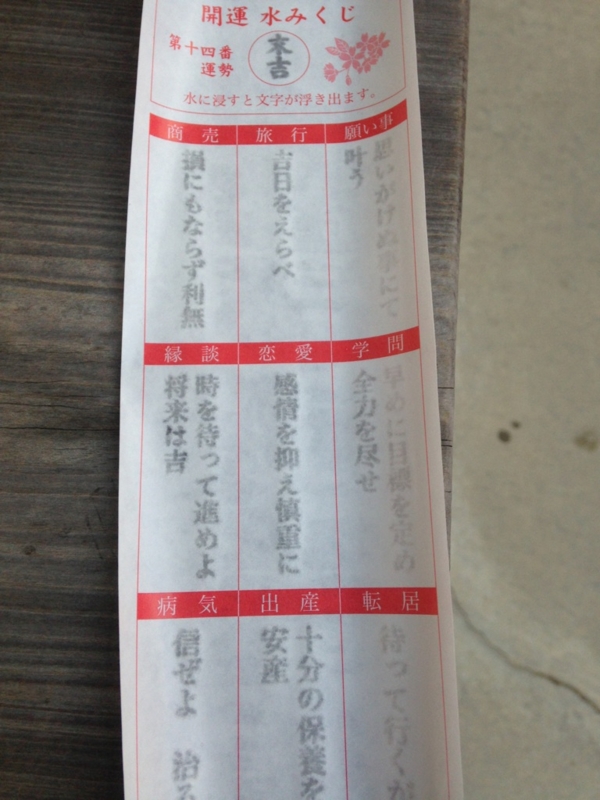 開運 水みくじ
第十四番
運勢
末吉
水に浸すと文字が浮き出ます。
願い事
思いがけぬ事にて
叶う
旅行
吉日をえらべ
商売
損にもならず利無
学問
早めに目標を定め
全力を尽せ
恋愛
感情を抑え慎重に
縁談
時を待って進めよ
将来は吉
転居
待って行くが
出産
十分の保養を
安産
病気
信ぜよ 治る